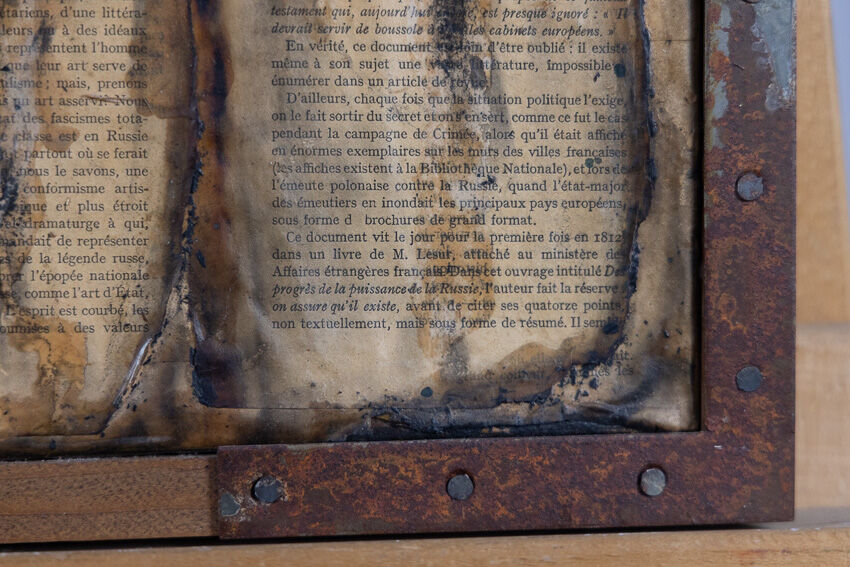 tariens, d'une littéra-
leurs ou à des idéaux
représentent l'homme
que leur art serve de
mais, prenons
un art asservi. Nous
des fascismes tota-
classe est en Russie
partout où se ferait
nous le savons, une
conformisme artis-
ique et plus étroit
dramaturge à qui,
mandait de représenter
de la légende russe,
l'épopée nationale
comme l'art d'État,
L'esprit est courbé, les
soumises à des valeurs
testament qui, aujourd'hui encore, est presque ignoré : « Il
devrait servir de boussole à les cabinets européens. »
En vérité, ce document est loin d'être oublié : il existe
même à son sujet une littérature, impossible
énumérer dans un article de revue.
D'ailleurs, chaque fois que la situation politique l'exige,
on le fait sortir du secret et on s'en sert, comme ce fut le cas
pendant la campagne de Crimée, alors qu'il était affiché
en énormes exemplaires sur les murs des villes françaises
(les affiches existent à la Bibliothèque Nationale), et lors de
l'émeute polonaise contre la Russie, quand l'état-major
des émeutiers en inondait les principaux pays européens,
sous forme d brochures de grand format.
Ce document vit le jour pour la première fois en 1812
dans un livre de M. Lesur, attaché au ministère des
Affaires étrangères français. Dans cet ouvrage intitulé Des
progrès de la puissance de la Russie, l'auteur fait la réserve :
on assure qu'il existe, avant de citer ses quatorze points,
non textuellement, mais sous forme de résumé. Il semble
les